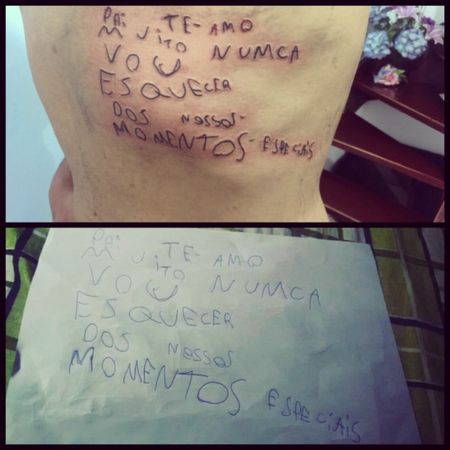 PAi TE-AMO
MUITO NUMCA
VOU
ESQUECER
DOS NOSSOS
MOMENTOS ESPECIAIS
PAi TE-AMO
MUITO
VOU NUMCA
ESQUECER
DOS NOSSOS
MOMENTOS ESPECIAIS